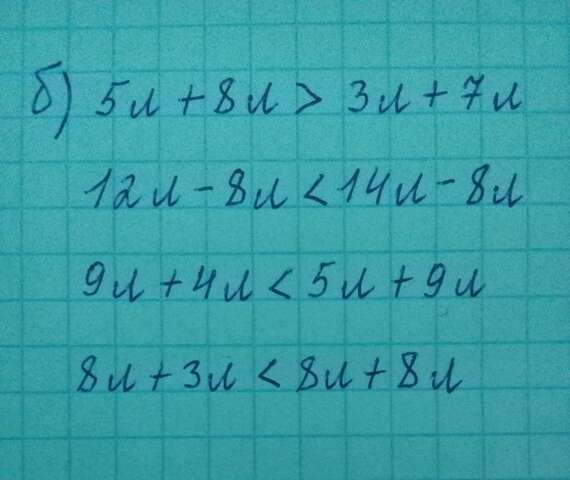 б) 5л + 8л > 3л + 7л
12л - 8л < 14л - 8л
9л + 4л < 5л + 9л
8л + 3л < 8л + 8л